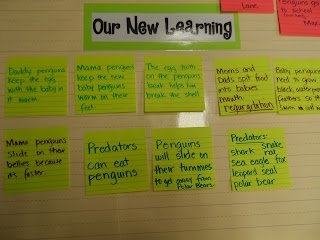 Our New Learning
Love
Penguins go
to school
Daddy penguins
keep the egg
with the baby in
it warm.
Mama penguins
keep the new
baby penguins
warm on their
feet.
The egg tooth
on the penguins
beak helps him
break the shell
Moms and
Dads spit food
into babies
mouth
regurgitation
Baby penguins
need to grow
black, waterproof
feathers so they
swim
Mama penguins
slide on their
bellies because
its faster.
Predators
can eat
penguins
Penguins
will slide on
their tummies
to get away from
Polar Bears
Predators:
shark snake
ray
sea eagle fox
leopard seal
polar bear